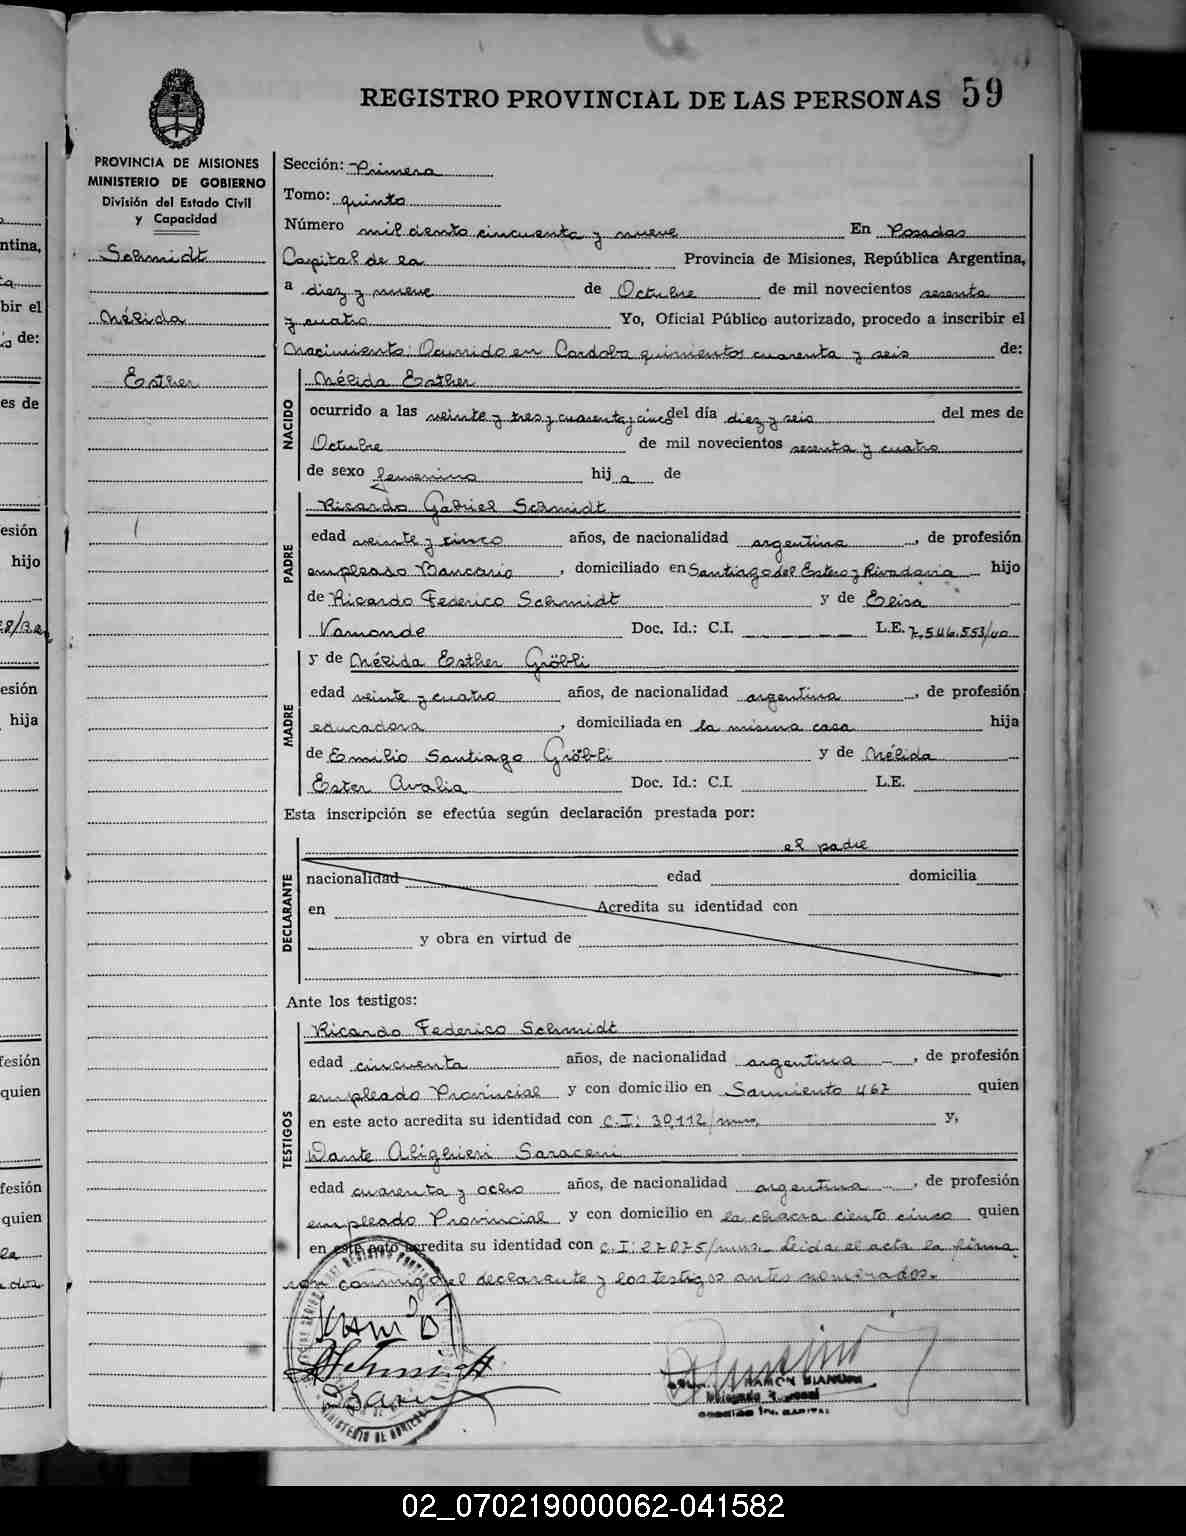 REGISTRO PROVINCIAL DE LAS PERSONAS 59
PROVINCIA DE MISIONES
MINISTERIO DE GOBIERNO
División del Estado Civil
y Capacidad
Schmidt
Nélida
Esther
Sección: Primera
Tomo: quinto
Número mil ciento cincuenta y nueve En Posadas
Capital de la Provincia de Misiones, República Argentina,
a diez y nueve de Octubre de mil novecientos sesenta
y cuatro Yo, Oficial Público autorizado, procedo a inscribir el
Nacimiento: Ocurrido en Cordoba quinientos cuarenta y seis de:
NACIDO
Nélida Esther
ocurrido a las veinte y tres y cuarenta y cinco del día diez y seis del mes de
Octubre de mil novecientos sesenta y cuatro
de sexo femenino hij a de
PADRE
Ricardo Gabriel Schmidt
edad veinte y cinco años, de nacionalidad argentina, de profesión
empleado Bancario, domiciliado en Santiago del Estero y Rivadavia hijo
de Ricardo Federico Schmidt y de Elisa
Vamonde Doc. Id.: C.I. L.E. 7.546.553/
MADRE
y de Nélida Esther Gröbli
edad veinte y cuatro años, de nacionalidad argentina, de profesión
educadora, domiciliada en la misma casa hija
de Emilio Santiago Gröbli y de Nélida
Ester Avalia Doc. Id.: C.I. L.E.
Esta inscripción se efectúa según declaración prestada por:
DECLARANTE
el padre
nacionalidad edad domicilia
en Acredita su identidad con
y obra en virtud de
Ante los testigos:
TESTIGOS
Ricardo Federico Schmidt
edad cincuenta años, de nacionalidad argentina, de profesión
empleado Provincial y con domicilio en Sarmiento 467 quien
en este acto acredita su identidad con C.I: 30.112/mns. y,
Dante Alighieri Saraceni
edad cuarenta y ocho años, de nacionalidad argentina, de profesión
empleado Provincial y con domicilio en la chacra ciento cinco quien
en este acto acredita su identidad con C.I: 27.075/mns. Leida el acta la firma
ron conmigo el declarante y los testigos antes nombrados.
Schmidt
RAMON
02_070219000062-041582